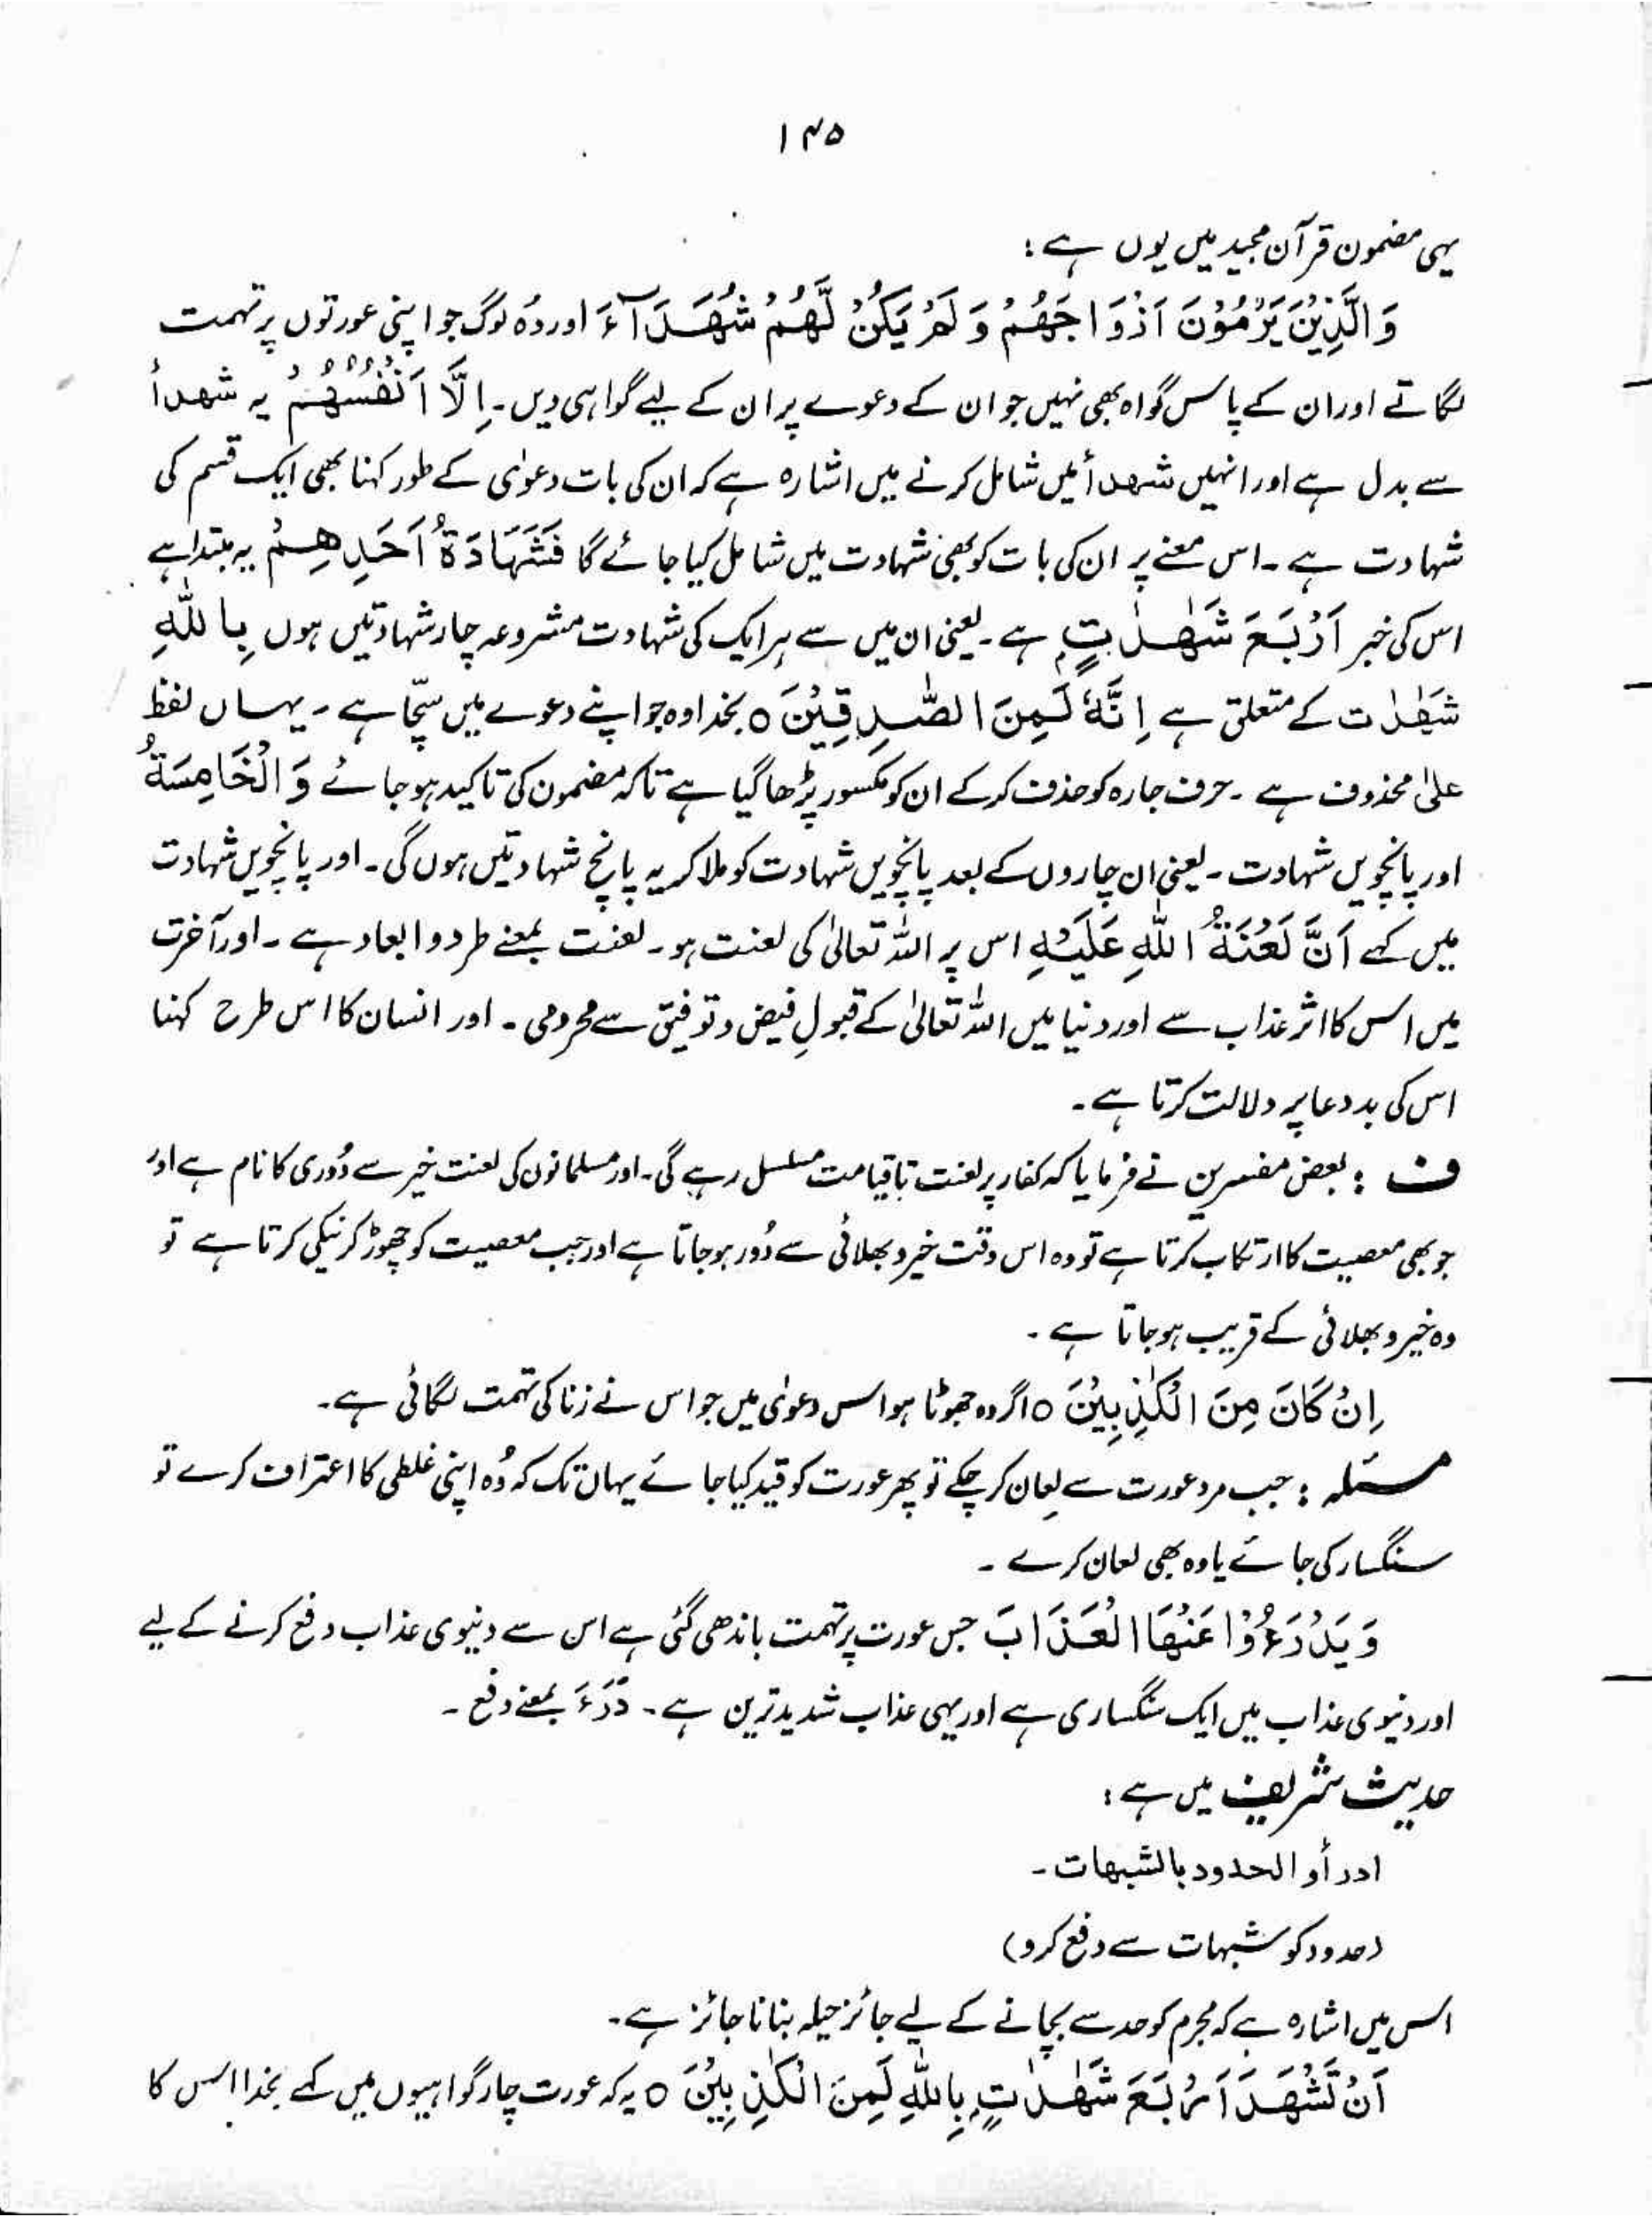 ۱۴۵
یہی مضمون قرآن مجید میں یوں ہے :
وَ الَّذِیْنَ یَرْمُوْنَ اَزْوَاجَهُمْ وَ لَمْ یَکُنْ لَّهُمْ شُهَدَآءَ اور وُہ لوگ جو اپنی عورتوں پر تہمت
لگاتے اور ان کے پاس گواہ بھی نہیں جو ان کے دعوے پر ان کے لیے گواہی دیں۔ اِلَّا اَنْفُسُهُمْ یہ شھدأ
سے بدل ہے اور انہیں شھدأ میں شامل کرنے میں اشارہ ہے کہ ان کی بات دعوٰی کے طور کہنا بھی ایک قسم کی
شہادت ہے۔ اس معنے پر ان کی بات کو بھی شہادت میں شامل کیا جائے گا فَشَهَادَةُ اَحَدِهِمْ یہ مبتدا ہے
اس کی خبر اَرْبَعَ شَهٰدٰتٍۭ ہے۔ یعنی ان میں سے ہر ایک کی شہادت مشروعہ چار شہادتیں ہوں بِاللّٰهِ
شَهٰدٰت کے متعلق ہے اِنَّهٗ لَمِنَ الصّٰدِقِیْنَ ○ بخدا وہ جو اپنے دعوے میں سچّا ہے۔ یہاں لفظ
علیٰ محذوف ہے۔ حرف جارہ کو حذف کرکے ان کو مکسور پڑھا گیا ہے تاکہ مضمون کی تاکید ہو جائے وَ الْخَامِسَةُ
اور پانچویں شہادت۔ یعنی ان چاروں کے بعد پانچویں شہادت کو ملا کر یہ پانچ شہادتیں ہوں گی۔ اور پانچویں شہادت
میں کہے اَنَّ لَعْنَةُ اللّٰهِ عَلَیْهِ اس پر اللہ تعالیٰ کی لعنت ہو۔ لعنت بمعنے طرد و ابعاد ہے۔ اور آخرت
میں اس کا اثر عذاب سے اور دنیا میں اللہ تعالیٰ کے قبولِ فیض و توفیق سے محرومی۔ اور انسان کا اس طرح کہنا
اس کی بددعا پر دلالت کرتا ہے۔
ف : بعض مفسرین نے فرمایا کہ کفار پر لعنت تاقیامت مسلسل رہے گی۔ اور مسلمانوں کی لعنت خیر سے دُوری کا نام ہے اور
جو بھی معصیت کا ارتکاب کرتا ہے تو وہ اس وقت خیر و بھلائی سے دُور ہو جاتا ہے اور جب معصیت کو چھوڑ کر نیکی کرتا ہے تو
وہ خیر و بھلائی کے قریب ہو جاتا ہے۔
اِنْ کَانَ مِنَ الْکٰذِبِیْنَ ○ اگر وہ جھوٹا ہو اس دعوٰی میں جو اس نے زنا کی تہمت لگائی ہے۔
مسئلہ : جب مرد عورت سے لعان کر چکے تو پھر عورت کو قید کیا جائے یہاں تک کہ وُہ اپنی غلطی کا اعتراف کرے تو
سنگسار کی جائے یا وہ بھی لعان کرے۔
وَ یَدْرَءُوْا عَنْهَا الْعَذَابَ جس عورت پر تہمت باندھی گئی ہے اس سے دنیوی عذاب دفع کرنے کے لیے
اور دنیوی عذاب میں ایک سنگساری ہے اور یہی عذاب شدید ترین ہے۔ دَرَءَ بمعنے دفع۔
حدیث شریف میں ہے :
ادرأو الحدود بالشبهات۔
(حدود کو شبہات سے دفع کرو)
اس میں اشارہ ہے کہ مجرم کو حد سے بچانے کے لیے جائز حیلہ بنانا جائز ہے۔
اَنْ تَشْهَدَ اَرْبَعَ شَهٰدٰتٍۭ بِاللّٰهِ لَمِنَ الْکٰذِبِیْنَ ○ یہ کہ عورت چار گواہیوں میں کہے بخدا اس کا